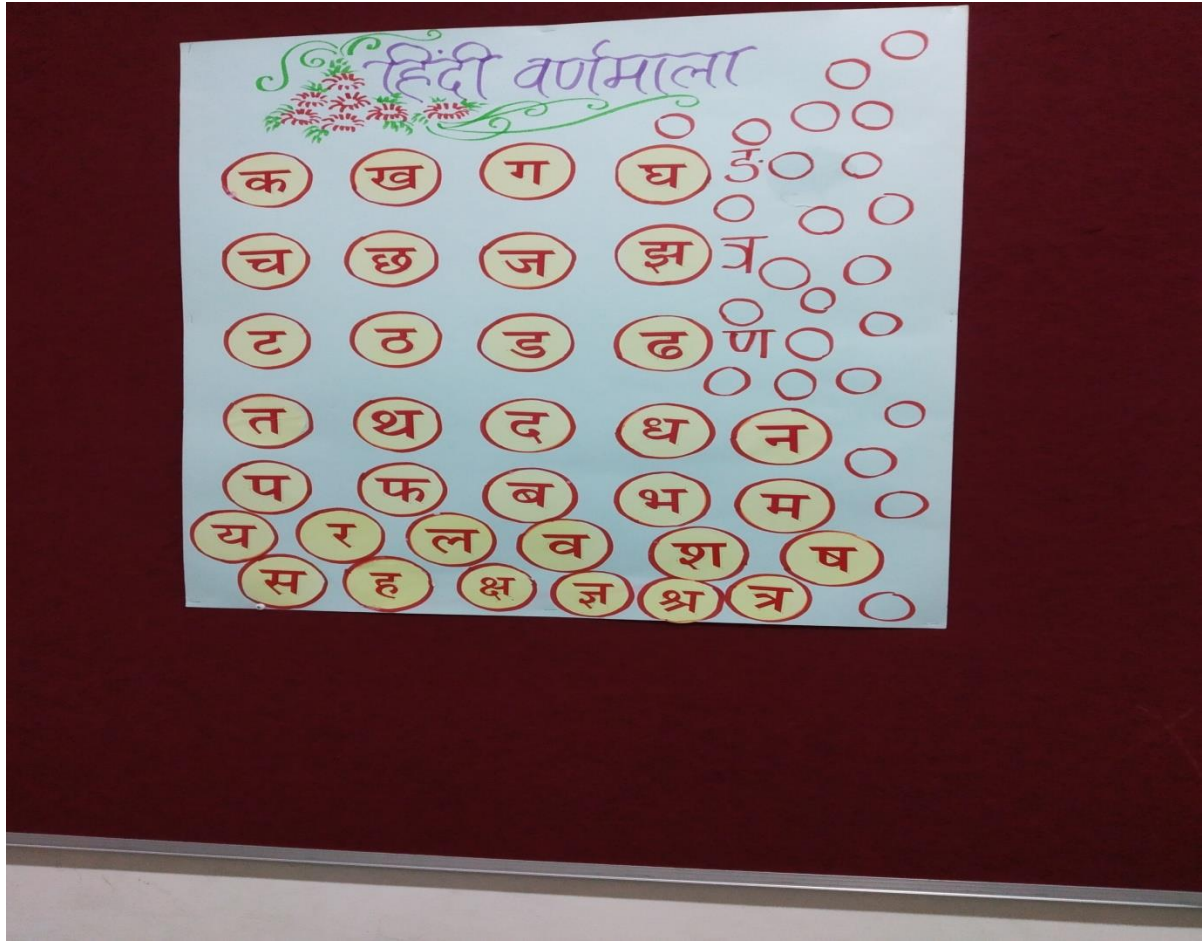 हिंदी वर्णमाला
क ख ग घ ङ
च छ ज झ त्र
ट ठ ड ढ ण
त थ द ध न
प फ ब भ म
य र ल व श ष
स ह क्ष ज्ञ श्र त्र